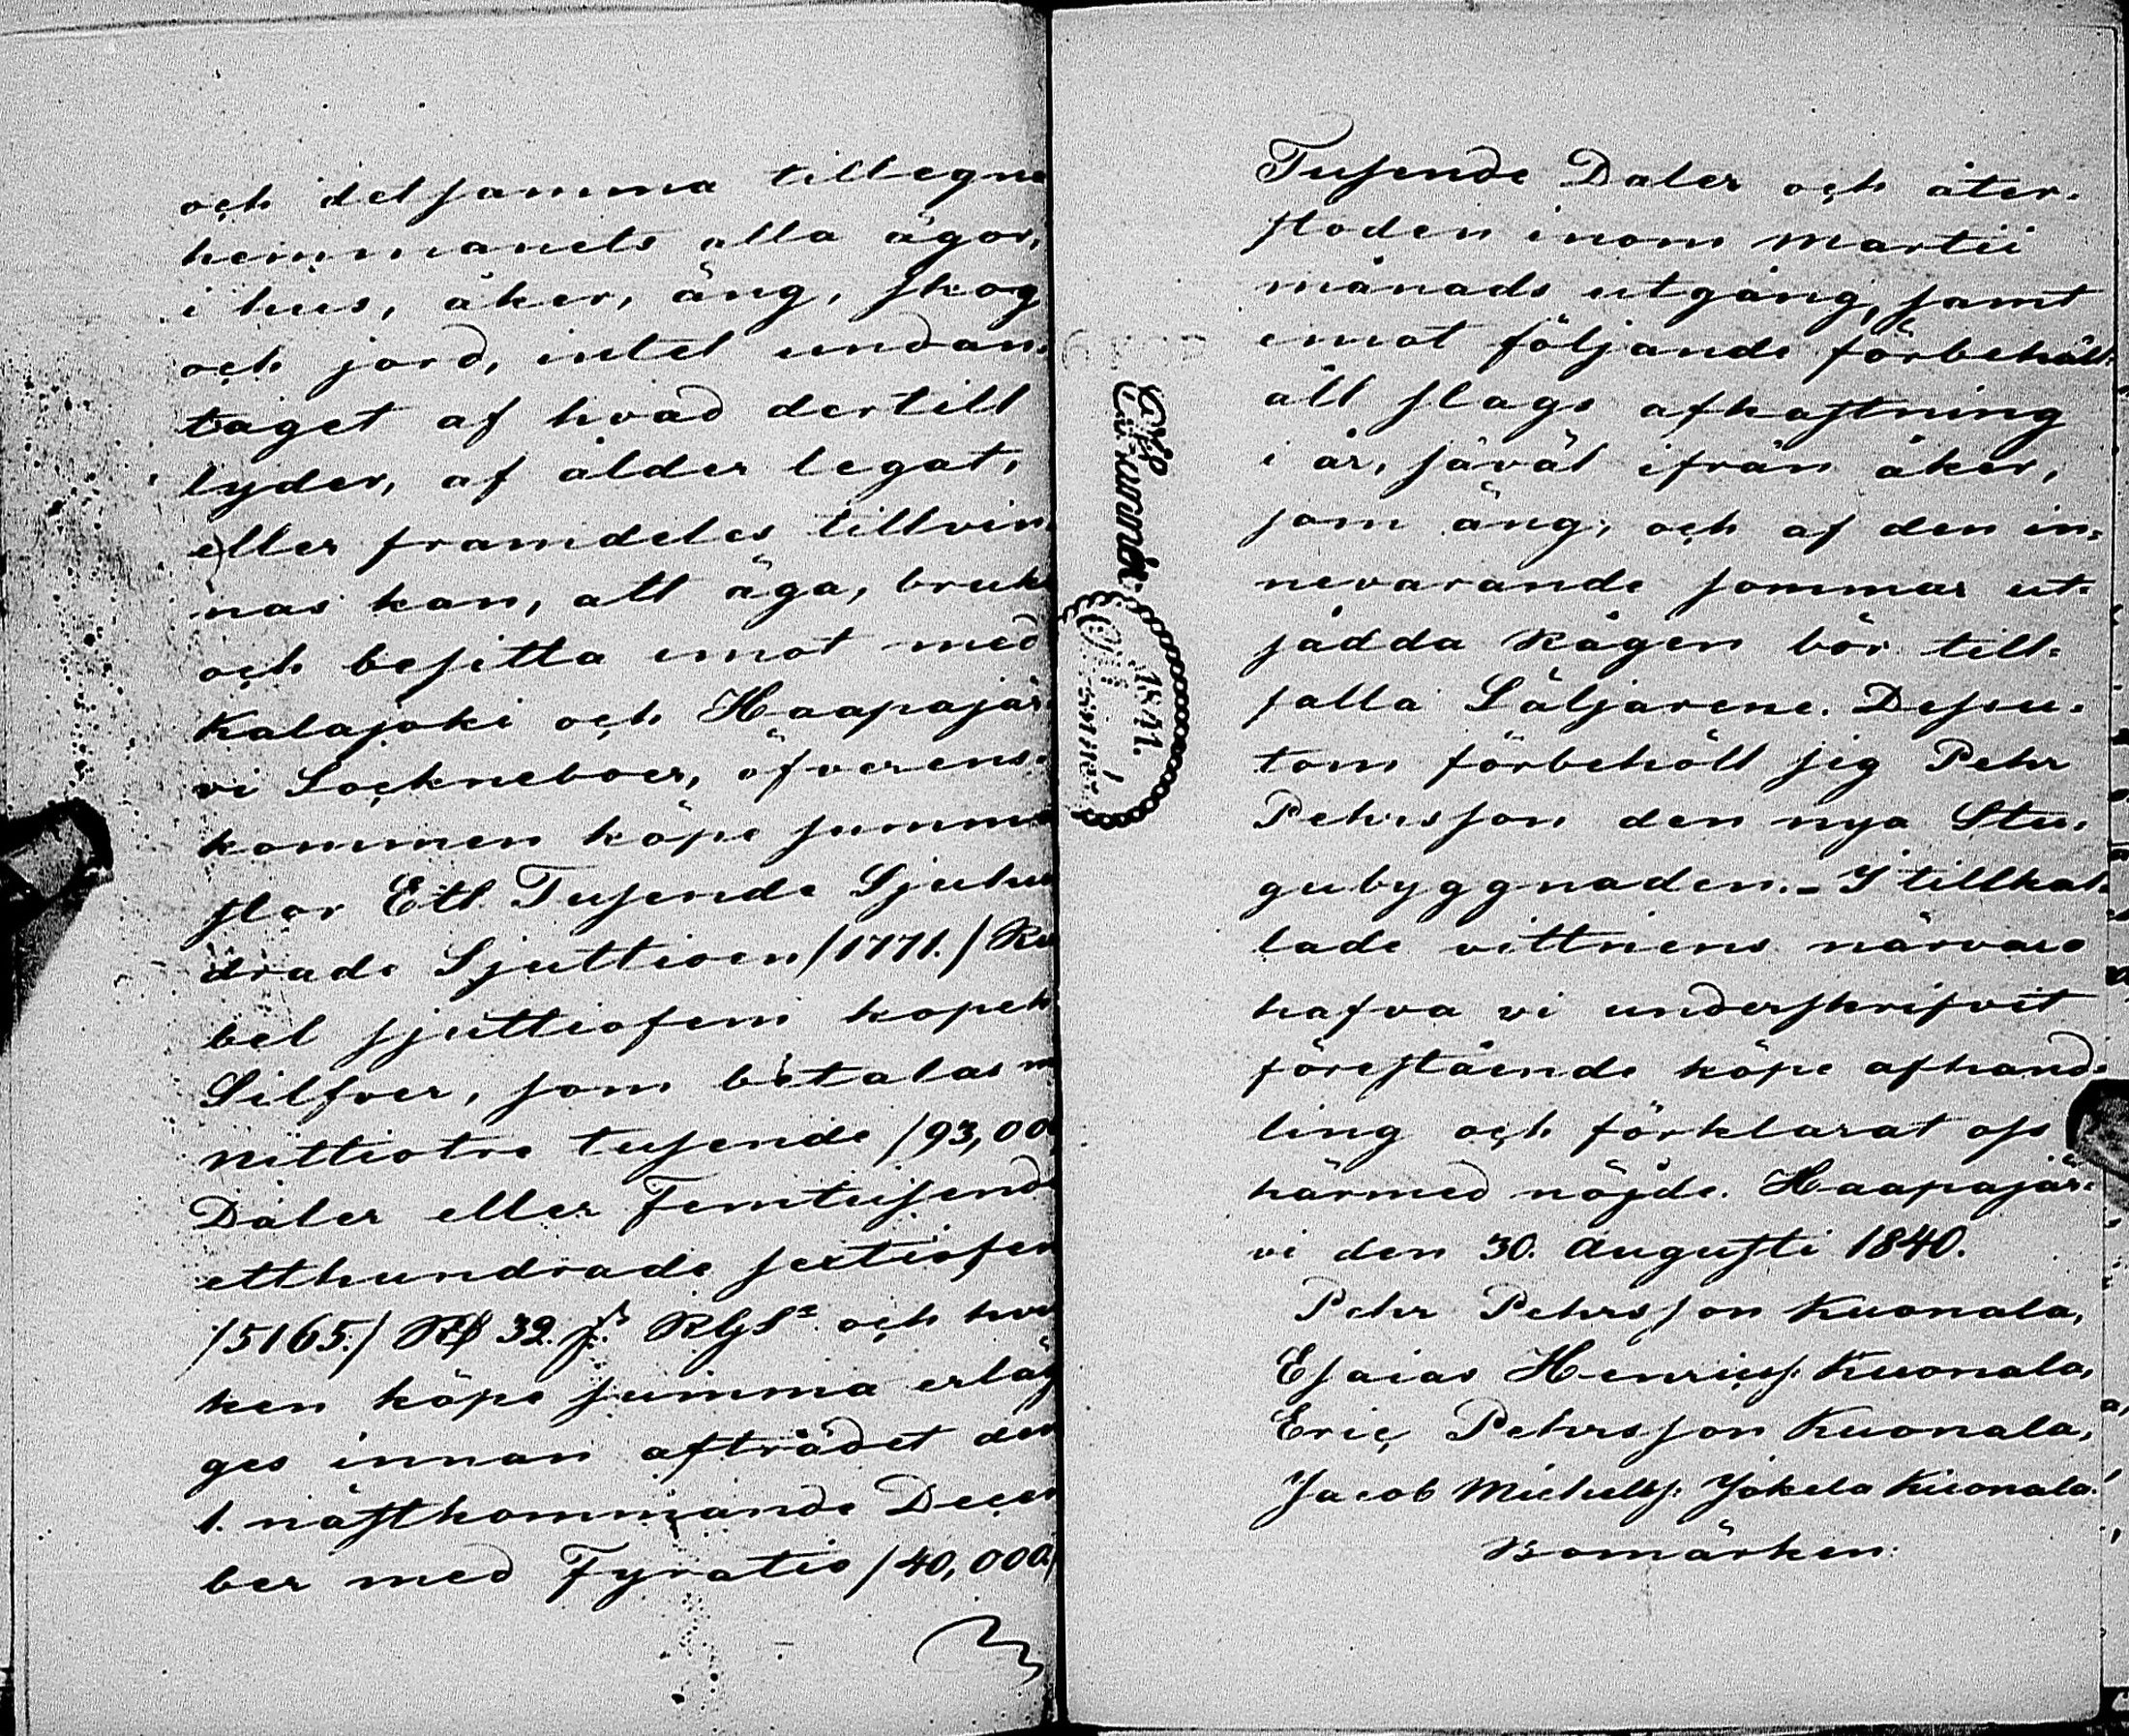 och detsamma tillegne
hemmanets alla ägor,
i hus, åker, äng, skog
och jord, intet undan¬
taget af hvad dertill
lyder, af ålder legat,
eller framdeles tillvin¬
nas kan, att äga, bruka
och besitta emot med
Kalajoki och Haapajär¬
vi Sockneboer, öfverens¬
kommen köpe summa
stor Ett Tusende Sjuhun
drade Sjuttioen /1771./ Ru
bel sjuttiofem kopek
Silfver, som betalas m
nittiotre tusende /93,000
Daler eller Femtusende
etthundrade sextiofem
/5165./ Rd 32 s. RGS och hvil
ken köpe summa erläg
ges innan afträdet den
1. nästkommande Decem
ber med Fyratio /40,000/
Tusende Daler och åter¬
stoden inom Martii
månads utgång, samt
emot följande förbehåll:
all slags afkastning
i år, såväl ifrån åker,
som äng, och af den in¬
nevarande sommar ut¬
sådda Rågen bör till¬
falla Säljarene. Dessu¬
tom förbehöll sig Pehr
Pehrsson den nya Stu¬
gubyggnaden. - I tillkal¬
lade vittnens närvaro
hafva vi underskrifvit
förestående köpe afhand¬
ling och förklarat oss
härmed nöjde. Haapajär¬
vi den 30. Augusti 1840.
Pehr Pehrsson Kuonala,
Esaias Henricss. Kuonala,
Eric Pehrsson Kuonala,
Jacob Michelss. Jokela Kuonala.
Bomärken:
1841.